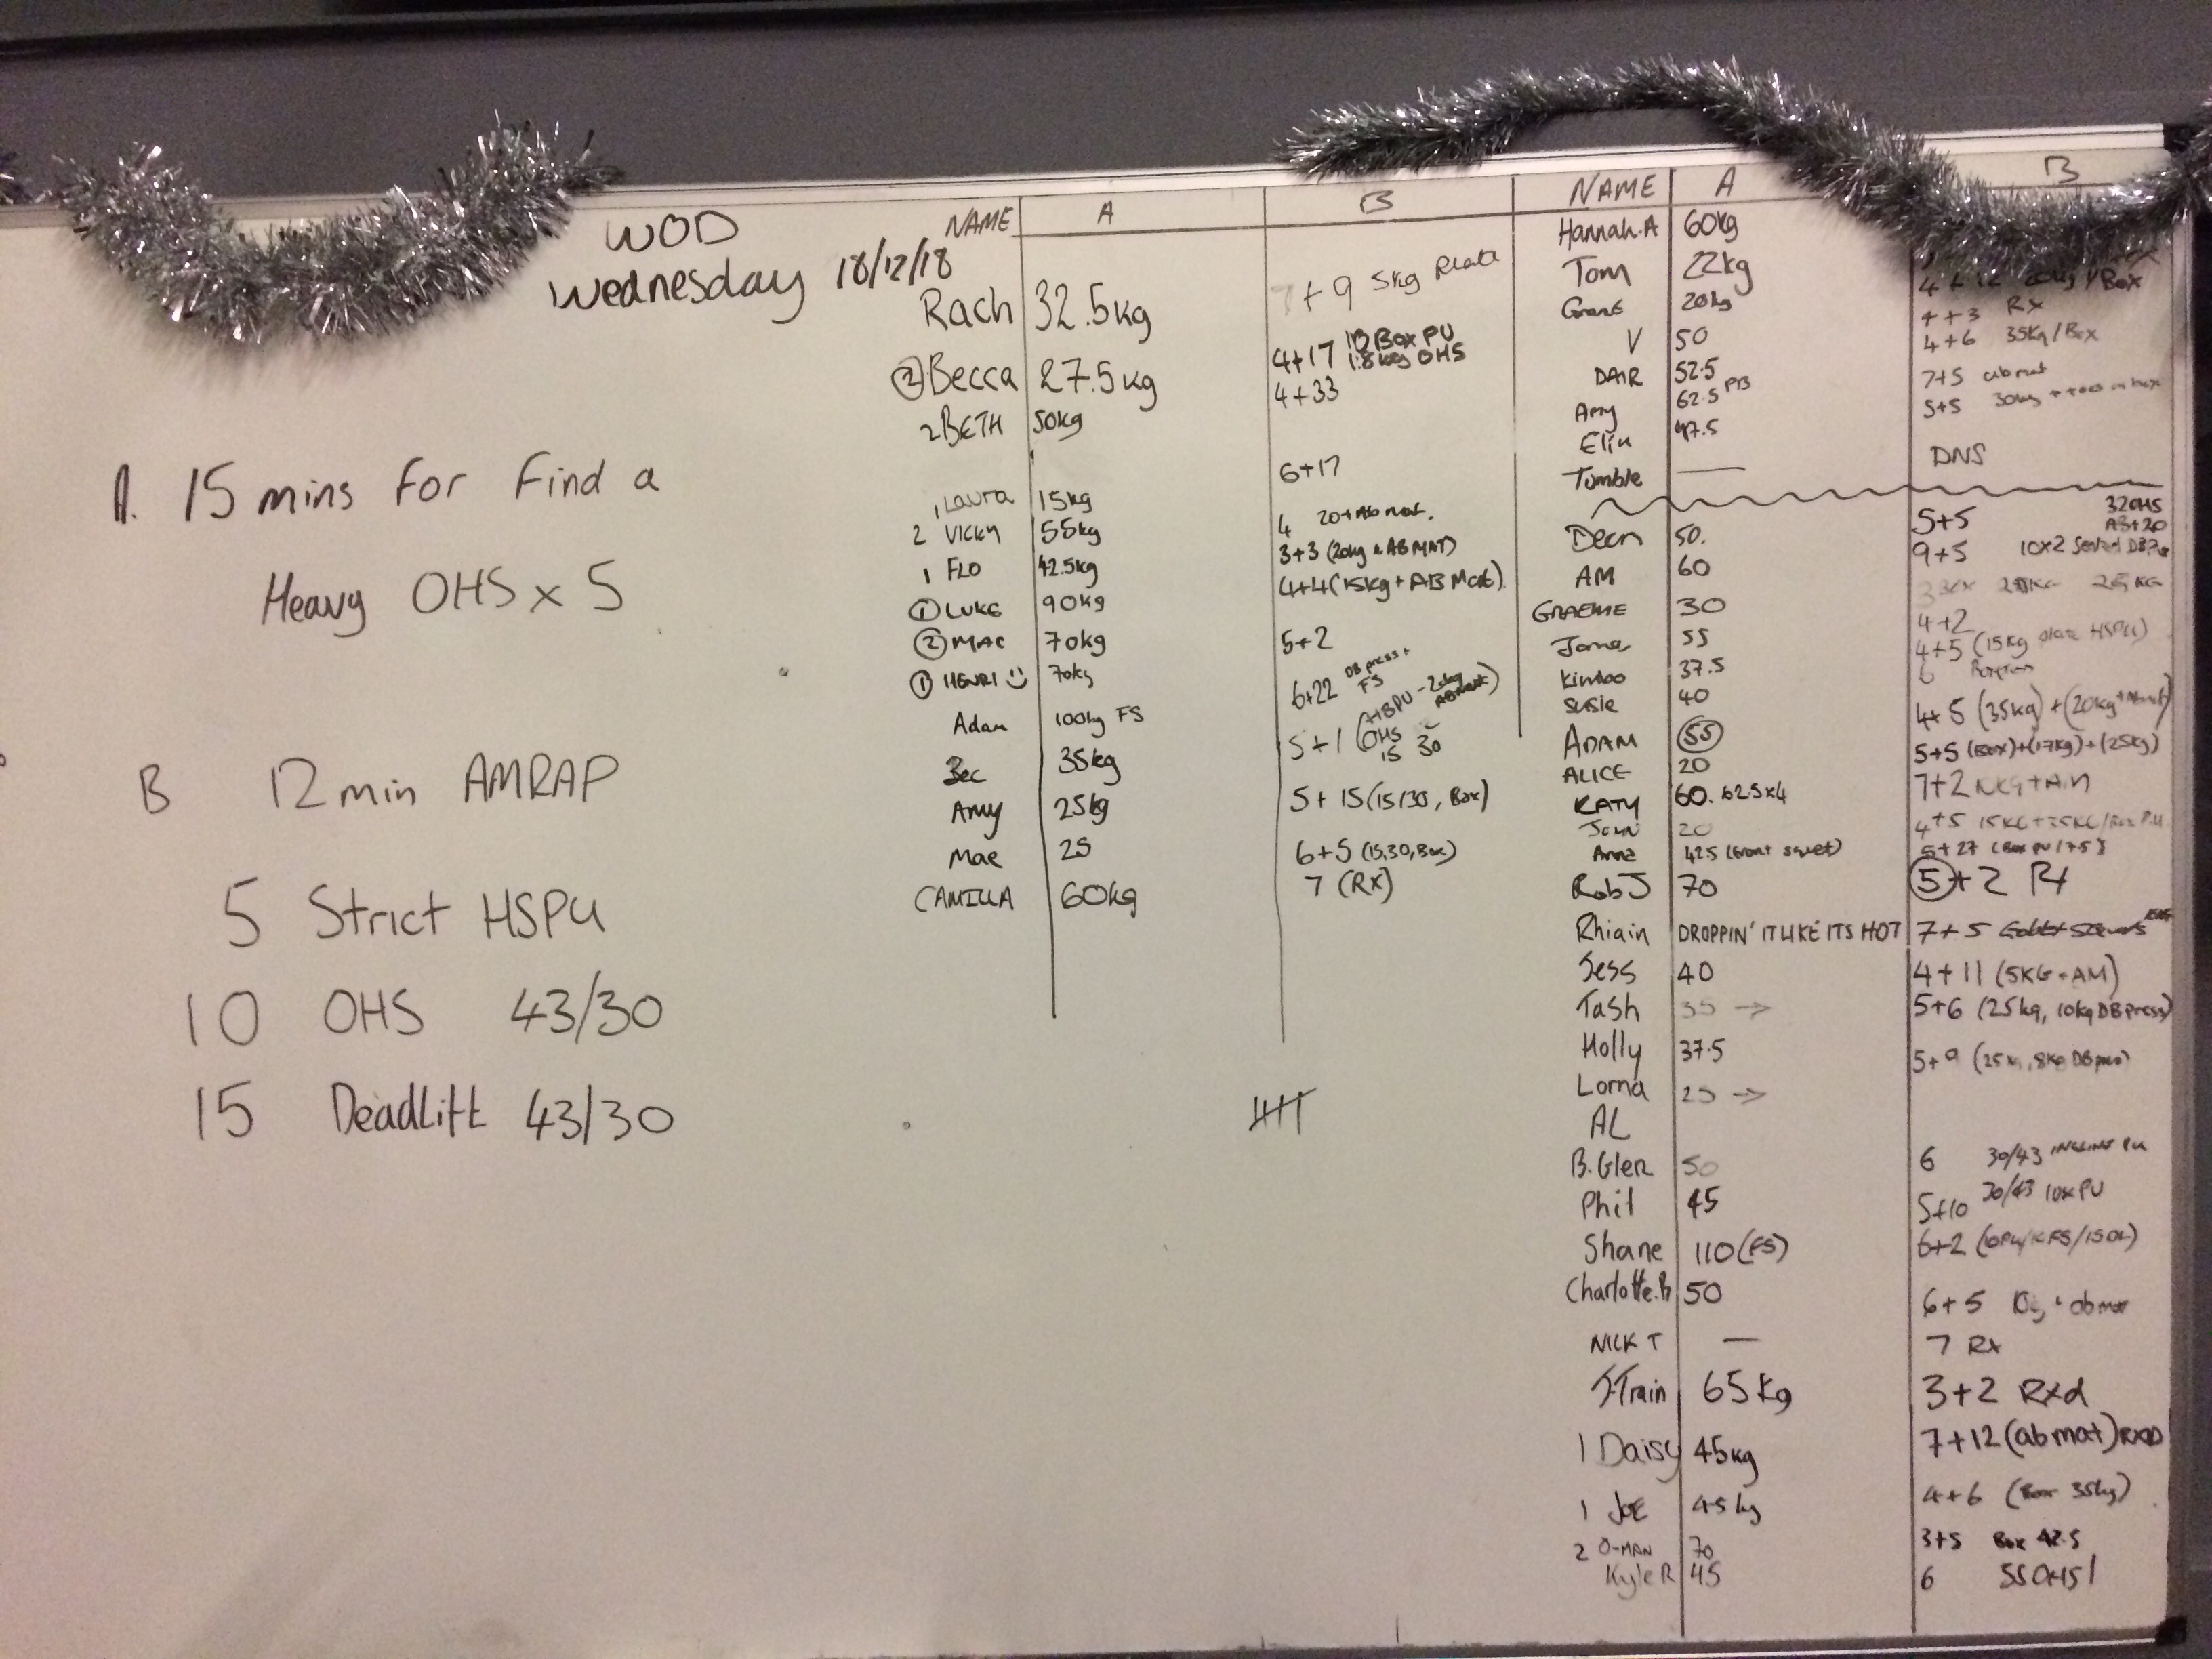 WOD
Wednesday 18/12/18
A. 15 mins for Find a
Heavy OHS x 5
B 12 min AMRAP
5 Strict HSPU
10 OHS 43/30
15 Deadlift 43/30
NAME A B
Rach 32.5kg + 9 5kg Plate
② Becca 27.5kg 4+17 Box PU
1.8kg OHS
2 BETH 50kg 4+33
6+17
1 Laura 15kg
2 VICKY 55kg 4 20+Ab mat.
1 FLO 42.5kg 3+3 (20kg + AB MAT)
① LUKE 90kg 4+4 (15kg + AB Mat)
② MAC 70kg 5+2
① HENRI 70kg 6+22 DB press +
FS
Adam 100kg FS 5+1 (HSPU - 25kg
OHS
15 30
Bec 35kg
Amy 25kg 5+15 (15/30, Box)
Mae 25 6+5 (15,30,Box)
CAMILLA 60kg 7 (RX)
NAME A B
Hannah.A 60kg
Tom 22kg 4+12 Box
Grant 20kg 4+3 Rx
V 50 4+6 35kg/Box
DAIR 52.5 7+5 ab mat
Amy 62.5 PB 5+5 30kg
Elin 47.5
Tumble — DNS
Dean 50. 5+5
AM 60 9+5 10x2 Seated
GRAEME 30
James 55 4+2
Kimbo 37.5 4+5 (15kg plate HSPU)
Susie 40 6
ADAM 55 4+5 (35kg) + (20kg + Abmat)
ALICE 20 5+5 (Box)+(17kg)+(25kg)
KATY 60. 62.5x4 7+2
John 20 4+5 15KG+35KG/Box P.U
Anna 42.5 (front squat) 5+27 (Box PU / 75)
Rob J 70 5+2
Rhiain DROPPIN' IT LIKE ITS HOT 7+5
Jess 40 4+11 (5KG + AM)
Tash 35 → 5+6 (25kg, 10kg DB press)
Holly 37.5 5+9 (25kg, 8kg DB press)
Lorna 25 →
AL
B.Glen 50 6 30/43 INCLINE PU
Phil 45 5+10 30/43 PU
Shane 110 (FS) 6+2
Charlotte.B 50 6+5 + ab mat
NICK T — 7 Rx
J-Train 65kg 3+2 Rxd
1 Daisy 45kg 7+12 (ab mat) RXD
1 JOE 45kg 4+6 (Box 35kg)
2 O-MAN 70 3+5 Box 42.5
Kyle R 45 6